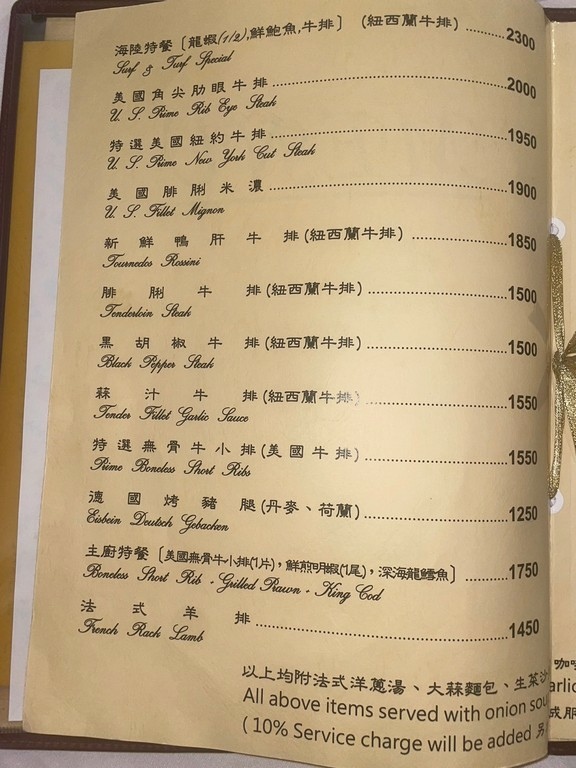 海陸特餐〔龍蝦(1/2),鮮鮑魚,牛排〕 (紐西蘭牛排) ........ 2300
Surf & Turf Special
美國角尖肋眼牛排 ........ 2000
U. S. Prime Rib Eye Steak
特選美國紐約牛排 ........ 1950
U. S. Prime New York Cut Steak
美國腓脷米濃 ........ 1900
U. S. Fillet Mignon
新鮮鴨肝牛排(紐西蘭牛排) ........ 1850
Tournedos Rossini
腓脷牛排(紐西蘭牛排) ........ 1500
Tenderloin Steak
黑胡椒牛排(紐西蘭牛排) ........ 1500
Black Pepper Steak
蒜汁牛排(紐西蘭牛排) ........ 1550
Tender Fillet Garlic Sauce
特選無骨牛小排(美國牛排) ........ 1550
Prime Boneless Short Ribs
德國烤豬腿(丹麥、荷蘭) ........ 1250
Eisbein Deutsch Gebachen
主廚特餐〔美國無骨牛小排(1片),鮮煎明蝦(1尾),深海龍鱈魚〕 ........ 1750
Boneless Short Rib - Grilled Prawn - King Cod
法式羊排 ........ 1450
French Rack Lamb
以上均附法式洋蔥湯、大蒜麵包、生菜沙
All above items served with onion sou
( 10% Service charge will be added 另
咖
arlic
成服